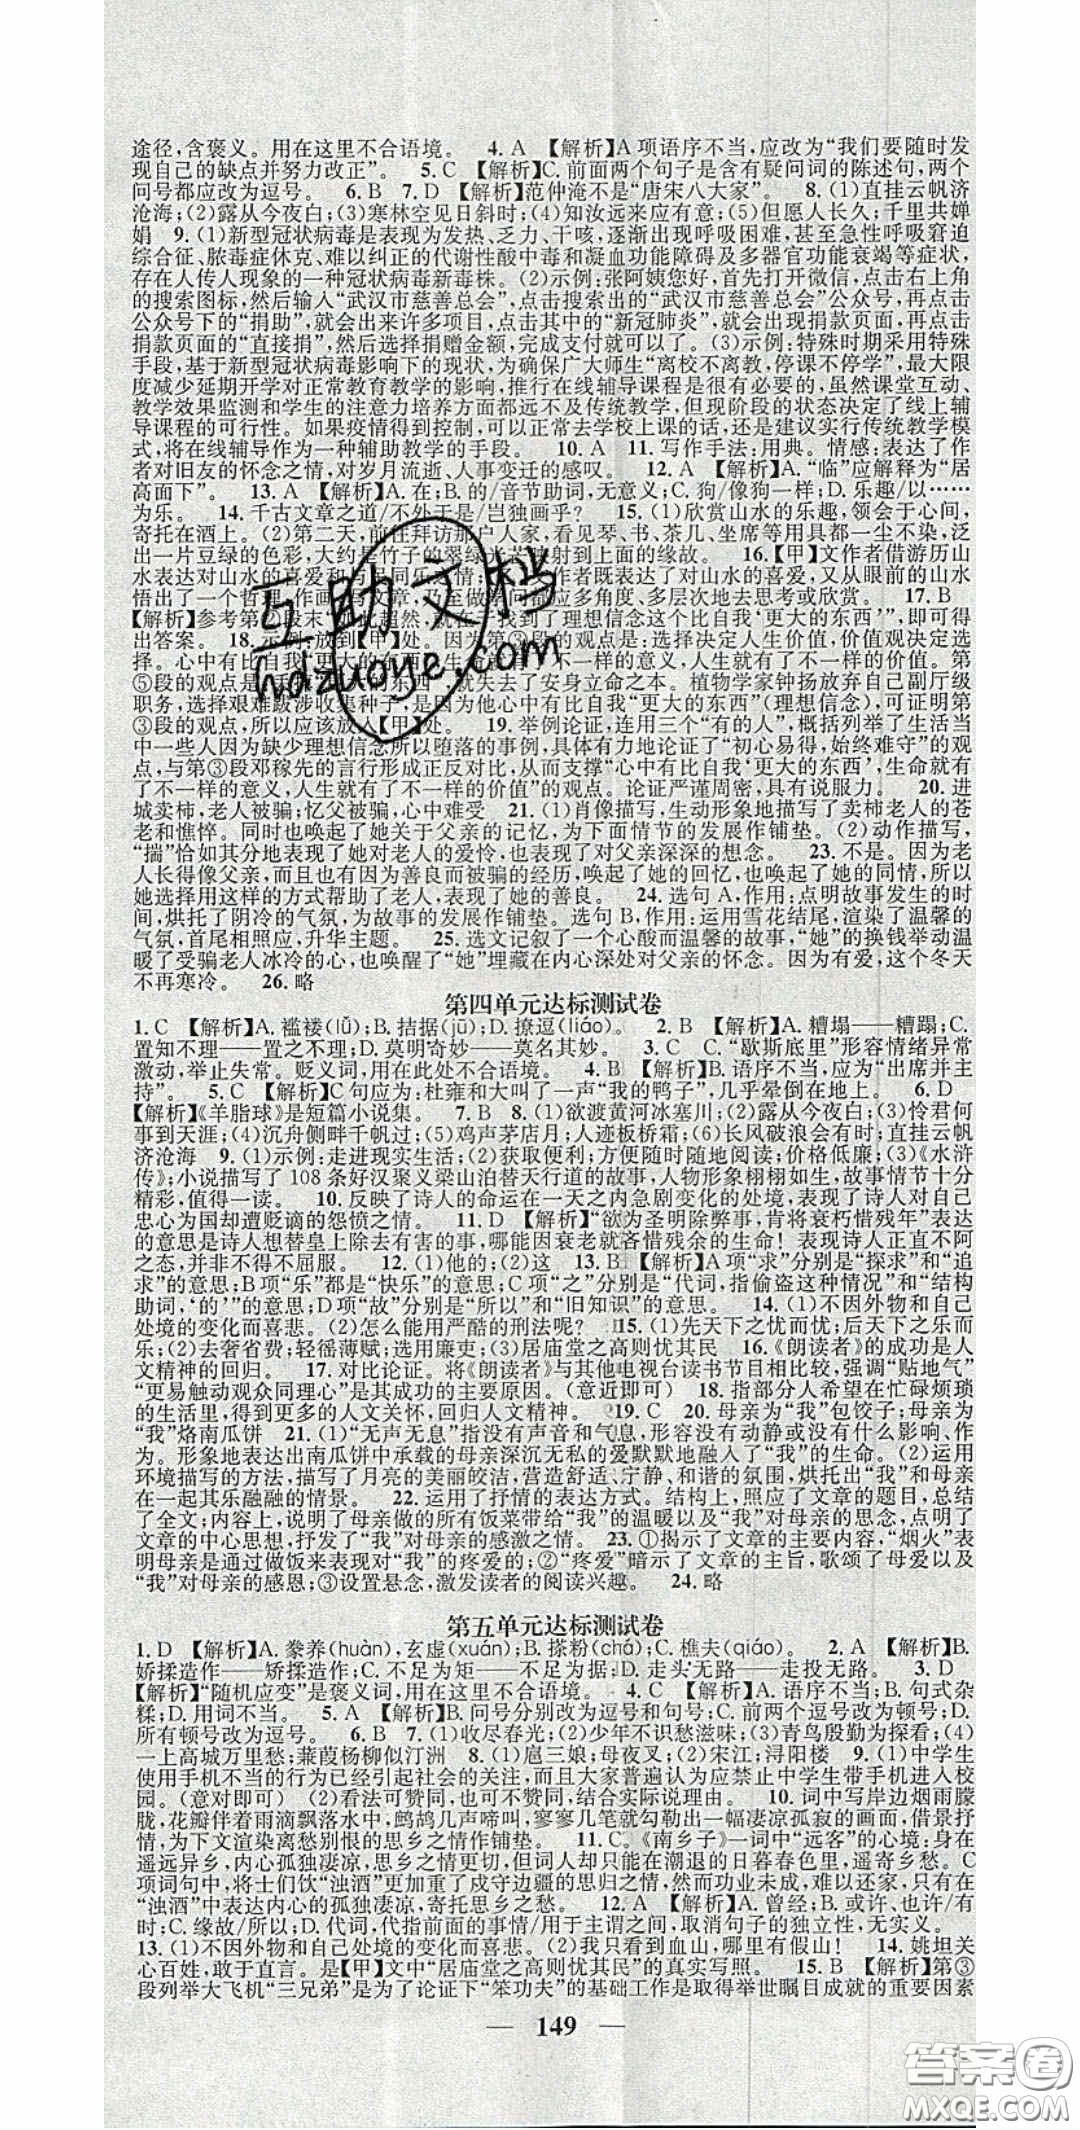 途径,含褒义。用在这里不合语境。 4. A 【解析】A 项语序不当,应改为“我们要随时发
现自己的缺点并努力改正”。 5. C 【解析】C. 前面两个句子是含有疑问词的陈述句,两个
问号都应改为逗号。 6. B 7. D 【解析】范仲淹不是“唐宋八大家”。 8. (1)直挂云帆济
沧海;(2)露从今夜白;(3)寒林空见日斜时;(4)知汝远来应有意;(5)但愿人长久;千里共婵
娟 9. (1)新型冠状病毒是表现为发热、乏力、干咳,逐渐出现呼吸困难,甚至急性呼吸窘迫
综合征、脓毒症休克、难以纠正的代谢性酸中毒和凝血功能障碍及多器官功能衰竭等症状,
存在人传人现象的一种冠状病毒新毒株。(2)示例:张阿姨您好,首先打开微信,点击右上角
的搜索图标,然后输入“武汉市慈善总会”,点击搜索出的“武汉市慈善总会”公众号,再点击
公众号下的“捐助”,就会出来许多项目,点击其中的“新冠肺炎”,就会出现捐款页面,再点击
捐款页面的“直接捐”,然后选择捐赠金额,完成支付就可以了。(3)示例:特殊时期采用特殊
手段,基于新型冠状病毒影响下的现状,为确保广大师生“离校不离教,停课不停学”,最大限
度减少延期开学对正常教育教学的影响,推行在线辅导课程是很有必要的,虽然课堂互动、
教学效果监测和学生的注意力培养方面都远不及传统教学,但现阶段的状态决定了线上辅
导课程的可行性。如果疫情得到控制,可以正常去学校上课的话,还是建议实行传统教学模
式,将在线辅导作为一种辅助教学的手段。 10. A 11. 写作手法:用典。情感:表达了作
者对旧友的怀念之情,对岁月流逝、人事变迁的感叹。 12. A 【解析】A. “临”应解释为“居
高面下”。 13. A 【解析】A. 在;B. 的/音节助词,无意义;C. 狗/像狗一样;D. 乐趣/以……
为乐。 14. 千古文章之道/不外于是/岂独画乎? 15. (1)欣赏山水的乐趣,领会于心间,
寄托在酒上。(2)第二天,前往拜访那户人家,看见琴、书、茶几、坐席等用具都非常整洁,泛
出一片豆绿的色彩,大约是竹子的翠绿光芒映射到上面的缘故。 16.【甲】文作者借游历山
水表达对山水的喜爱和与民同乐之情;作者既表达了对山水的喜爱,又从眼前的山水
悟出了一个哲理:作画与文章,乃至做学问都应多角度、多层次地去思考或欣赏。 17. B
【解析】参考第②段末“如此超然,就在于找到理想信念这个比自我‘更大的东西’”,即可得
出答案。 18. 示例:放到【甲】处。因为第③段的观点是:选择决定人生价值,价值观决定选
择。心中有比自我“更大的东西”,人生就有了不一样的意义,人生就有了不一样的价值。第
⑤段的观点是:无“更大的东西”,就失去了安身立命之本。植物学家钟扬放弃自己副厅级
职务,选择艰难跋涉收集种子,是因为他心中有比自我“更大的东西”(理想信念),可证明第
③段的观点,所以应该放入【甲】处。 19. 举例论证,连用三个“有的人”,概括列举了生活当
中一些人因为缺少理想信念所以堕落的事例,具体有力地论证了“初心易得,始终难守”的观
点,与第③段邓稼先的言行形成正反对比,从而支撑“心中有比自我‘更大的东西’,生命就有
了不一样的意义,人生就有了不一样的价值”的观点。论证严谨周密,具有说服力。 20. 进
城卖柿,老人被骗;忆父被骗,心中难受 21. (1)肖像描写,生动形象地描写了卖柿老人的苍
老和憔悴。同时也唤起了她关于父亲的记忆,为下面情节的发展作铺垫。(2)动作描写,
“揣”恰如其分地表现了她对老人的爱怜,也表现了对父亲深深的想念。 23. 不是。因为老
人长得像父亲,而且也有因为善良而被骗的经历,唤起了她的回忆,唤起了她的同情,所以
她选择用这样的方式帮助了老人,表现了她的善良。 24. 选句 A,作用:点明故事发生的时
间,烘托了阴冷的气氛,为故事的发展作铺垫。选句 B,作用:运用雪花结尾,渲染了温馨的
气氛,首尾相照应,升华主题。 25. 选文记叙了一个心酸而温馨的故事,“她”的换钱举动温
暖了受骗老人冰冷的心,也唤醒了“她”埋藏在内心深处对父亲的怀念。因为有爱,这个冬天
不再寒冷。 26. 略
第四单元达标测试卷
1. C 【解析】A. 褴褛(lǚ);B. 拮据(jū);D. 撩逗(liáo)。 2. B 【解析】A. 糟塌——糟蹋;C.
置知不理——置之不理;D. 莫明奇妙——莫名其妙。 3. C C. “歇斯底里”形容情绪异常
激动,举止失常。贬义词,用在此处不合语境。 4. B 【解析】B. 语序不当,应为“出席并主
持”。 5. C 【解析】C 句应为:杜雍和大叫了一声“我的鸭子”,几乎晕倒在地上。 6. D
【解析】《羊脂球》是短篇小说集。 7. B 8. (1)欲渡黄河冰塞川;(2)露从今夜白;(3)怜君何
事到天涯;(4)沉舟侧畔千帆过;(5)鸡声茅店月;人迹板桥霜;(6)长风破浪会有时;直挂云帆
济沧海 9. (1)示例:走进现实生活;(2)获取便利;方便随时随地阅读;价格低廉;(3)《水浒
传》;小说描写了 108 条好汉聚义梁山泊替天行道的故事,人物形象栩栩如生,故事情节十分
精彩,值得一读。 10. 反映了诗人的命运在一天之内急剧变化的处境,表现了诗人对自己
忠心为国却遭贬谪的怨愤之情。 11. D 【解析】“欲为圣明除弊事,肯将衰朽惜残年”表达
的意思是诗人想替皇上除去有害的事,哪能因衰老就吝惜残余的生命!表现诗人正直不阿
之态,并非不得不屈服。 12. (1)他的;(2)这 13. B 【解析】A项“求”分别是“探求”和“追
求”的意思;B 项“乐”都是“快乐”的意思;C 项“之”分别是“代词,指偷盗这种情况”和“结构
助词,‘的’”的意思;D 项“故”分别是“所以”和“旧知识”的意思。 14. (1)不因外物和自己
处境的变化而喜悲。(2)怎么能用严酷的刑法呢? 15. (1)先天下之忧而忧;后天下之乐而
乐;(2)去奢省费;轻徭薄赋;选用廉吏;(3)居庙堂之高则忧其民 16.《朗读者》的成功是人
文精神的回归。 17. 对比论证。将《朗读者》与其他电视台读书节目相比较,强调“贴地气”
“更易触动观众同理心”是其成功的主要原因。(意近即可) 18. 指部分人希望在忙碌烦琐
的生活里,得到更多的人文关怀,回归人文精神。 19. C 20. 母亲为“我”包饺子;母亲为
“我”烙南瓜饼 21. (1)“无声无息”原指没有声音和气息,形容没有动静或没有什么影响、作
为。形象地表达出南瓜饼中承载的母亲深沉无私的爱默默地融入了“我”的生命。(2)运用
环境描写的方法,描写了月亮的美丽皎洁,营造舒适、宁静、和谐的氛围,烘托出“我”和母亲
在一起其乐融融的情景。 22. 运用了抒情的表达方式。结构上,照应了文章的题目,总结
了全文;内容上,说明了母亲做的所有饭菜带给“我”的温暖以及“我”对母亲的思念,点明了
文章的中心思想,抒发了“我”对母亲的感激之情。 23. ①揭示了文章的主要内容,“烟火”表
明母亲是通过做饭来表现对“我”的疼爱的;②“疼爱”暗示了文章的主旨,歌颂了母爱以及
“我”对母亲的感恩;③设置悬念,激发读者的阅读兴趣。 24. 略
第五单元达标测试卷
1. D 【解析】A. 豢养(huàn),玄虚(xuán);B. 搽粉(chá);C. 樵夫(qiáo)。 2. A 【解析】B.
娇揉造作——矫揉造作;C. 不足为矩——不足为据;D. 走头无路——走投无路。 3. D
【解析】“随机应变”是褒义词,用在这里不合语境。 4. C 【解析】A. 语序不当;B. 句式杂
糅;D. 用词不当。 5. A 【解析】B. 问号分别改为逗号和句号;C. 前两个逗号改为顿号;D.
所有顿号改为逗号。 6. B 7. (1)收尽春光;(2)少年不识愁滋味;(3)青鸟殷勤为探看;(4)
一上高城万里愁;蒹葭杨柳似汀洲 8. (1)扈三娘;母夜叉;(2)宋江;浔阳楼 9. (1)中学生
使用手机不当的行为已经引起社会的关注,而且大家普遍认为应禁止中学生带手机进入校
园。(意对即可) (2)看法可赞同,也可不赞同,结合实际说理由。 10. 词中写岸边烟雨朦
胧,花瓣伴着雨滴飘落水中,鹧鸪几声啼叫,寥寥几笔就勾勒出一幅凄凉孤寂的画面,借景抒
情,为下文渲染离愁别恨的思乡之情作铺垫。 11. C。《南乡子》一词中“远客”的心境:身在
遥远异乡,内心孤独凄凉,思乡之情更切,但词人却只能在潮退的日暮春色里,遥寄乡愁。C
项词句中,将士们饮“浊酒”更加重了戍守边疆的思归之情,然而功业未成,难以还家,只有在
“浊酒”中表达内心的孤独凄凉,寄托思乡之愁。 12. A 【解析】A. 曾经;B. 或许、也许/有
时;C. 缘故/所以;D. 代词,代指前面的事情/用于主谓之间,取消句子的独立性,无实义。
13. (1)不因外物和自己处境的变化而喜悲。(2)我只看到血山,哪里有假山! 14. 姚坦关
心百姓,敢于直言,是【甲】文中“居庙堂之高则忧其民”的真实写照。 15. B 【解析】第③
段列举大飞机“三兄弟”是为了论证下“笨功夫”的基础工作是取得举世瞩目成就的重要因素
— 149 —
互助文档
hdzuoye.com
答案圈
MXQE.COM